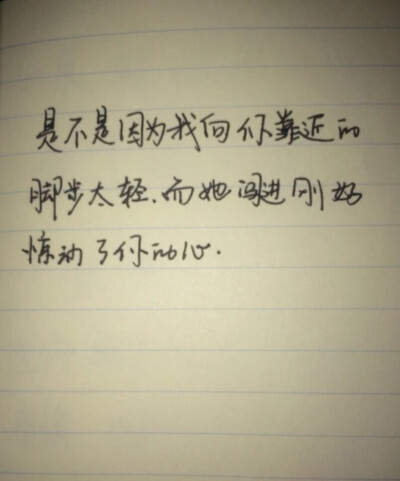 是不是因为我向你靠近的
脚步太轻.而她闯进刚好
惊动了你的心.